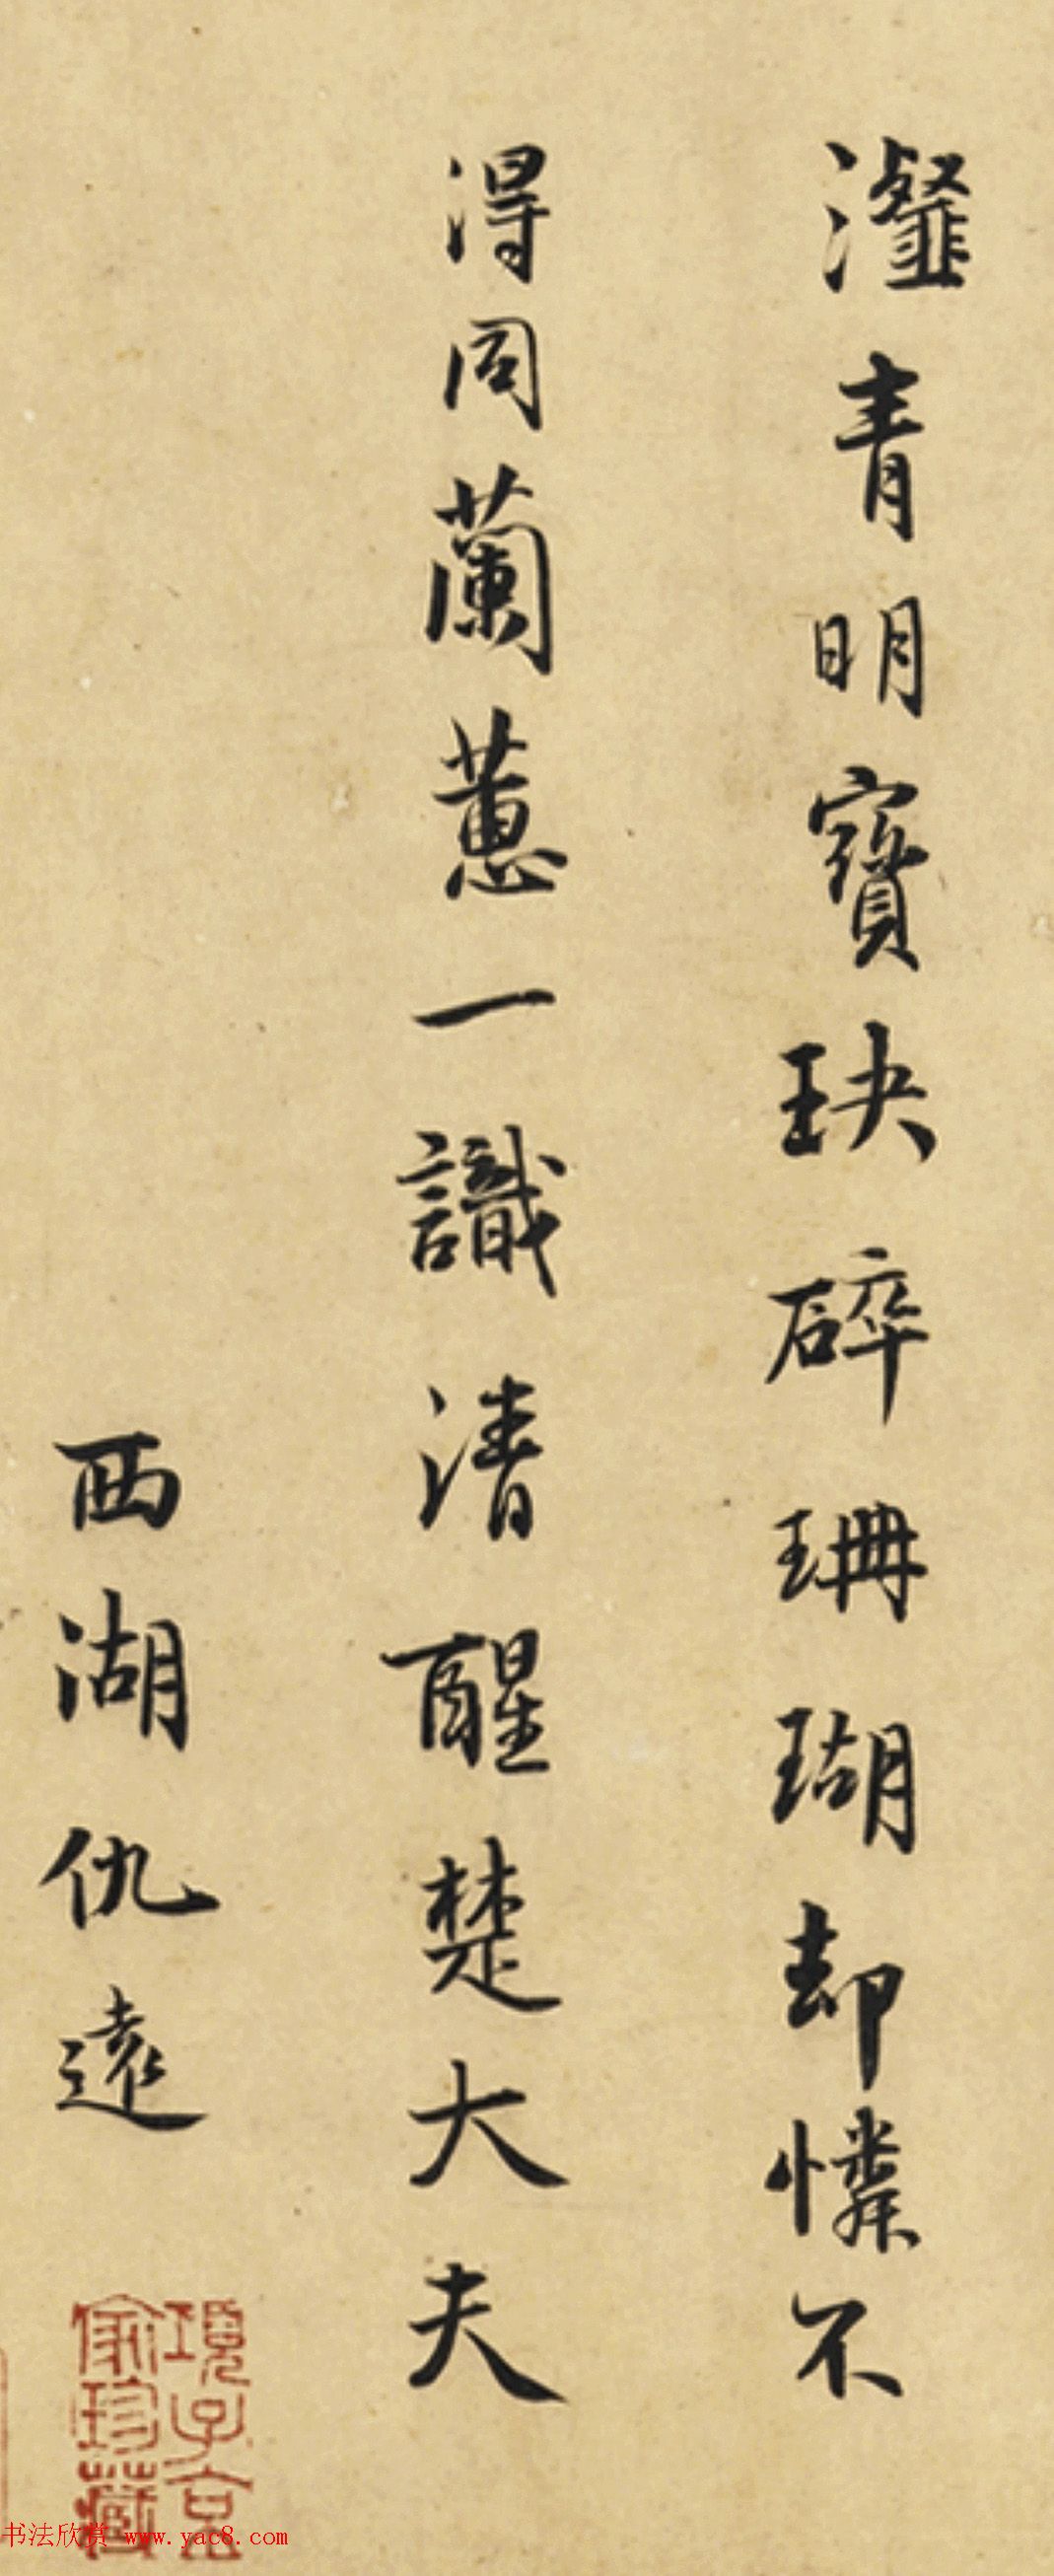 瀣青明寶玦碎珊瑚却憐不
得同蘭蕙一識清醒楚大夫
西湖仇遠
項子京
家珍藏
书法欣赏 www.yac8.com